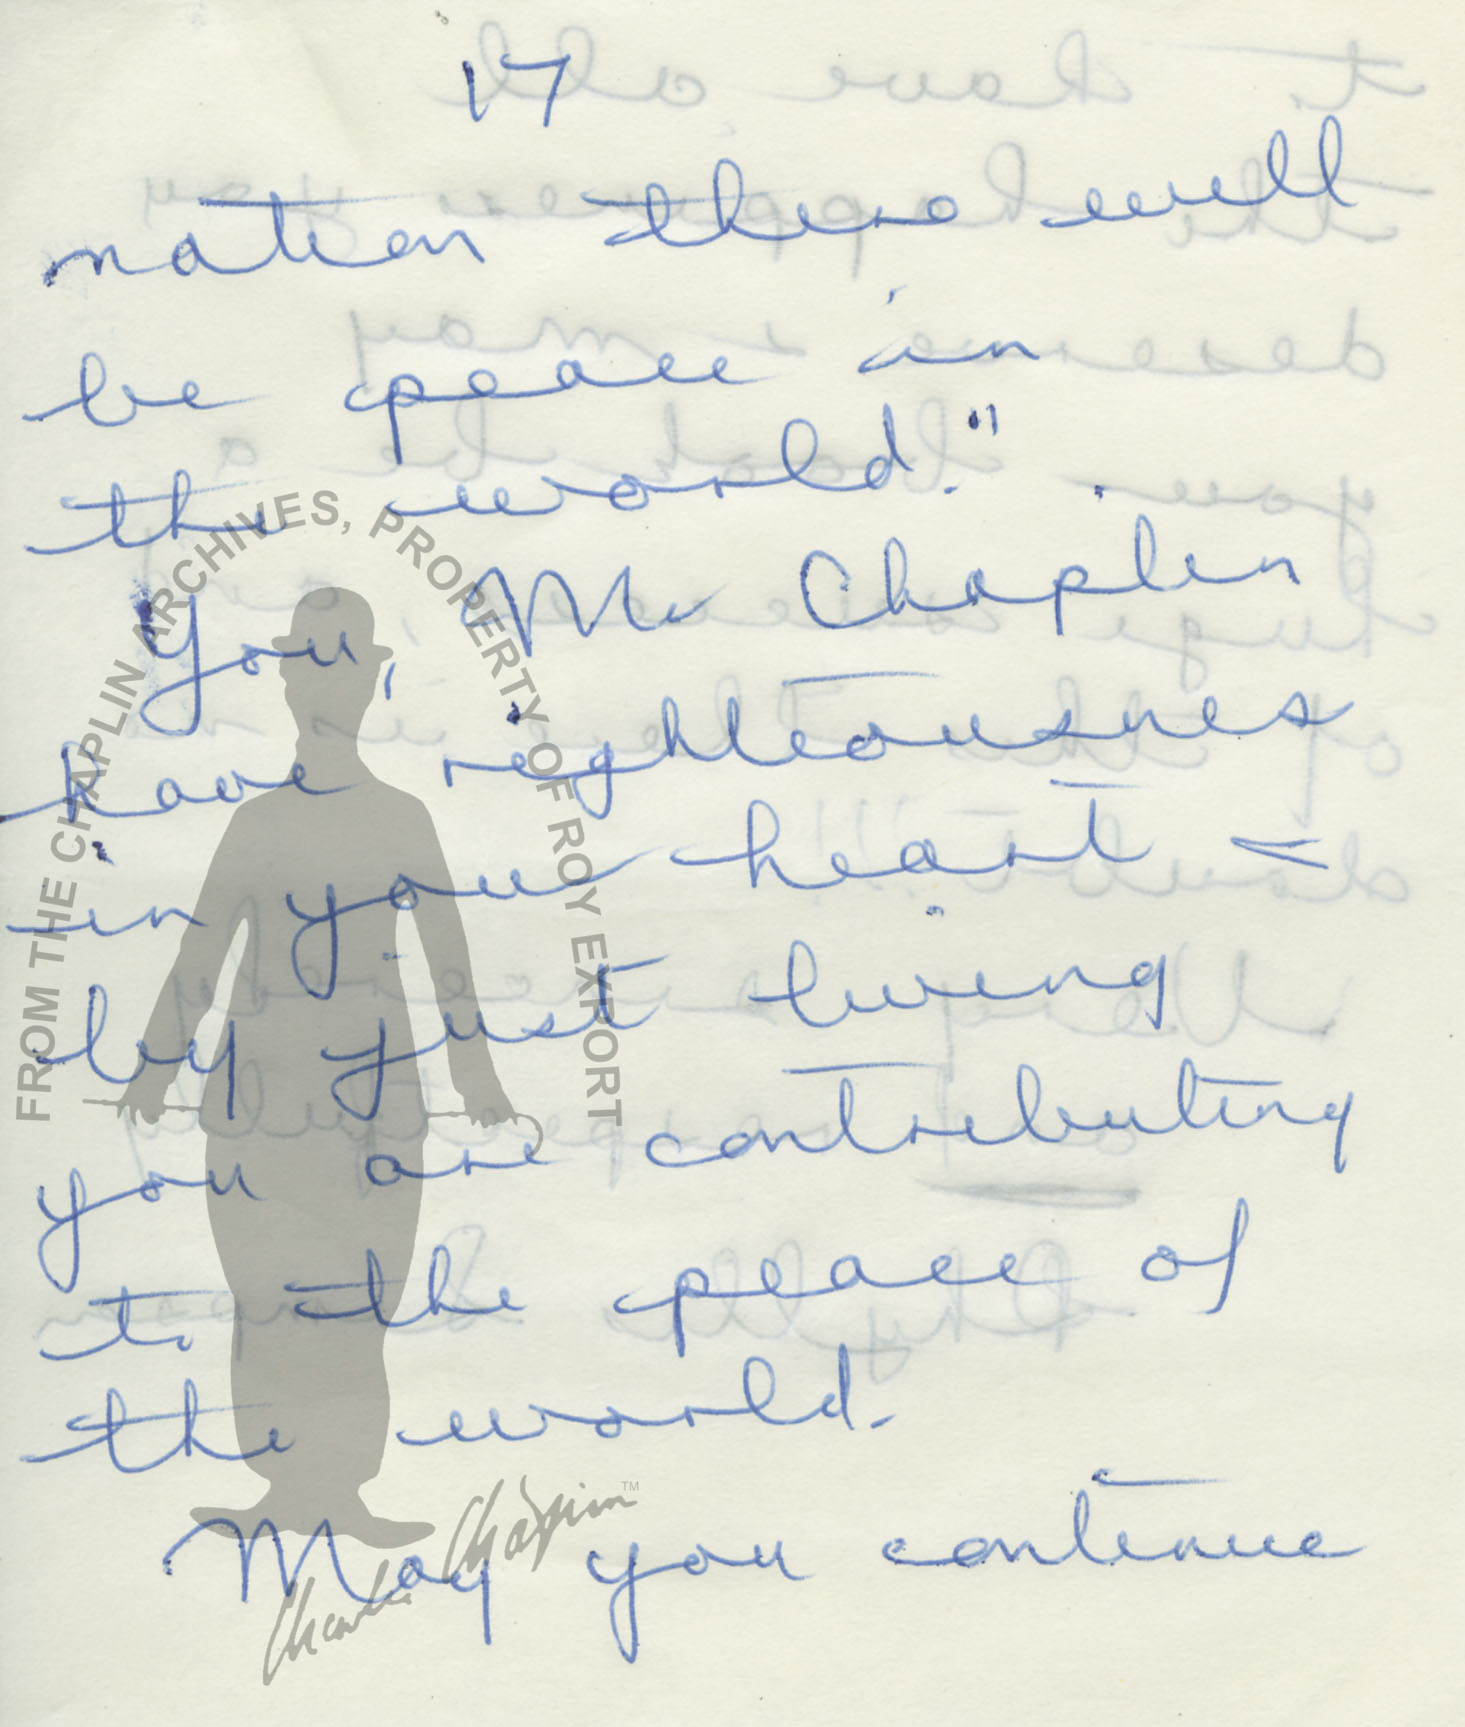 17
nation there will
be peace in
the world." .
You, Mr Chaplin
have righteousness
in your heart =
by just living
you are contributing
to the peace of
the world.
May you continue
FROM THE CHAPLIN ARCHIVES, PROPERTY OF ROY EXPORT
Charlie Chaplin™